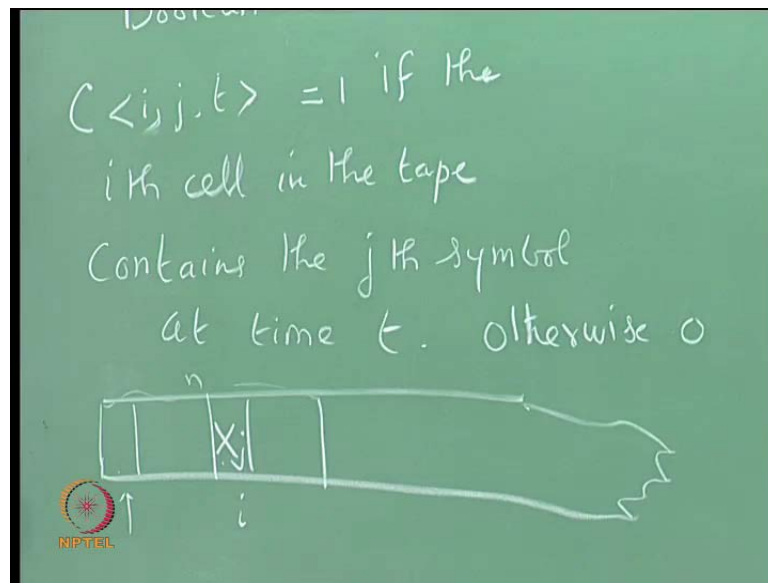 Boolean
C <i, j, t> = 1 if the
ith cell in the tape
Contains the jth symbol
at time t. otherwise 0
n
Xj
i
NPTEL